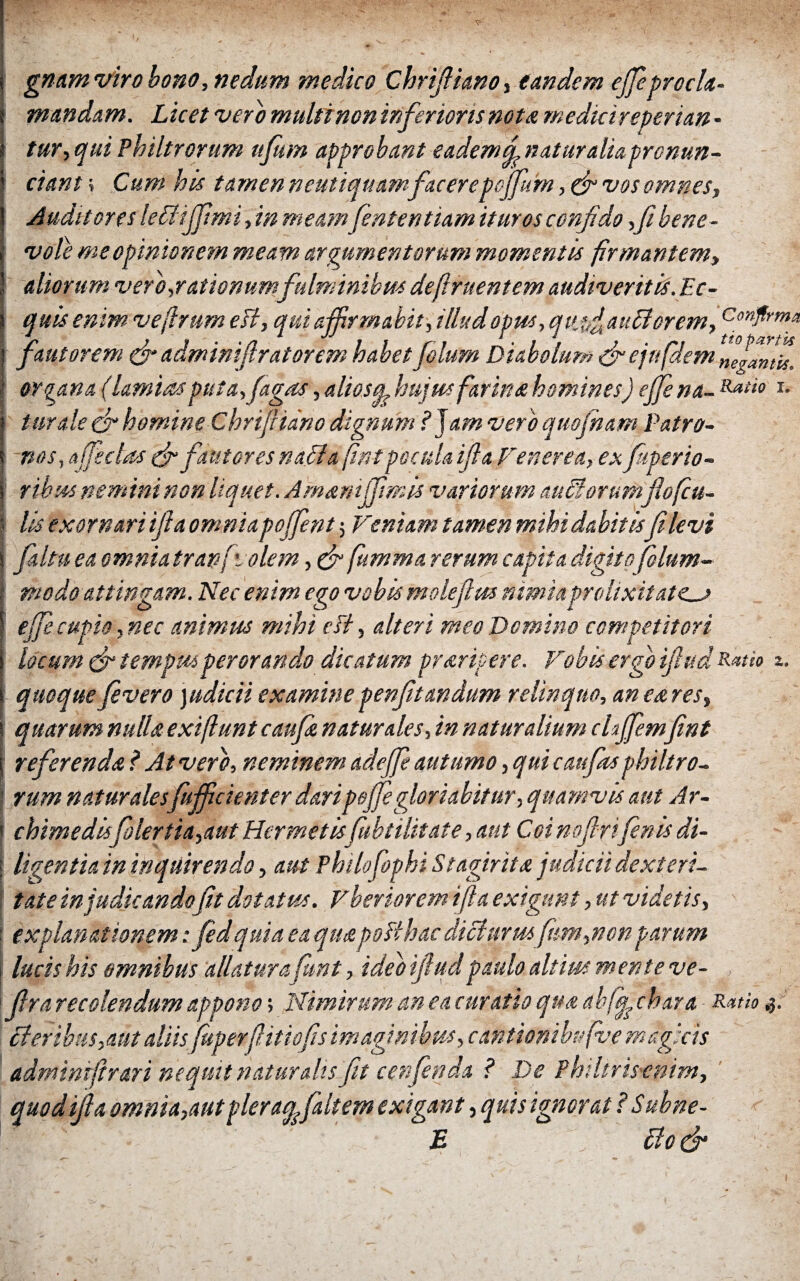 gnam viro bono, nedum medico Chriſtiano, eandem eſſe procla-
mandam. Licet verò multi non inferioris notæ medici reperian-
tur, qui Philtrorum uſum approbant eademq́; naturalia pronun-
ciant; Cum his tamen neutiquam facere poſſum, & vos omnes,
Auditores lectiſſimi, in meam ſententiam ituros confido, ſi bene-
volè me opinionem meam argumentorum momentis firmantem,
aliorum verò, rationum fulminibus deſtruentem audiveritis. Ec-
quis enim veſtrum eſt, qui affirmabit, illud opus, quod auctorem,
Confirma
tio partis
negantis.
fautorem & adminiſtratorem habet ſolum Diabolum & ejuſdem
organa (lamias puta, ſagas, aliosq́; hujus farinæ homines) eſſe na-
Ratio 1.
turale & homine Chriſtiano dignum? Jam verò quoſnam Patro-
nos, aſſeclas & fautores nacta ſint pocula iſta Venerea, ex ſuperio-
ribus nemini non liquet. Amæniſſimis variorum auctorum floſcu-
lis exornari iſta omnia poſſent; Veniam tamen mihi dabitis ſi levi
ſaltu ea omnia tranſilolem, & ſumma rerum capita digito ſolum-
modo attingam. Nec enim ego vobis moleſtus nimia prolixitate
eſſe cupio, nec animus mihi eſt, alteri meo Domino competitori
locum & tempus perorando dicatum præripere. Vobis ergò iſtud
Ratio 2.
quoque ſevero judicii examine penſitandum relinquo, an eæ res,
quarum nullæ exiſtunt cauſæ naturales, in naturalium claſſem ſint
referendæ? At verò, neminem adeſſe autumo, qui cauſas philtro-
rum naturales ſufficienter dari poſſe gloriabitur, quamvis aut Ar-
chimedis ſolertia, aut Hermetis ſubtilitate, aut Coi noſtri ſenis di-
ligentia in inquirendo, aut Philoſophi Stagiritæ judicii dexteri-
tate in judicando ſit dotatus. Vberiorem iſta exigunt, ut videtis,
explanationem: ſed quia ea quæ poſthac dicturus ſum, non parum
lucis his omnibus allatura ſunt, ideò iſtud paulo altius mente ve-
ſtra recolendum appono; Nimirum an ea curatio quæ abſq́; chara
Ratio 3.
cteribus, aut aliis ſuperſtitioſis imaginibus, cantionibuſve magicis
adminiſtrari nequit naturalis ſit cenſenda? De Philtris enim,
quod iſta omnia, aut pleraq́; ſaltem exigant, quis ignorat? Subne-
E
cto &